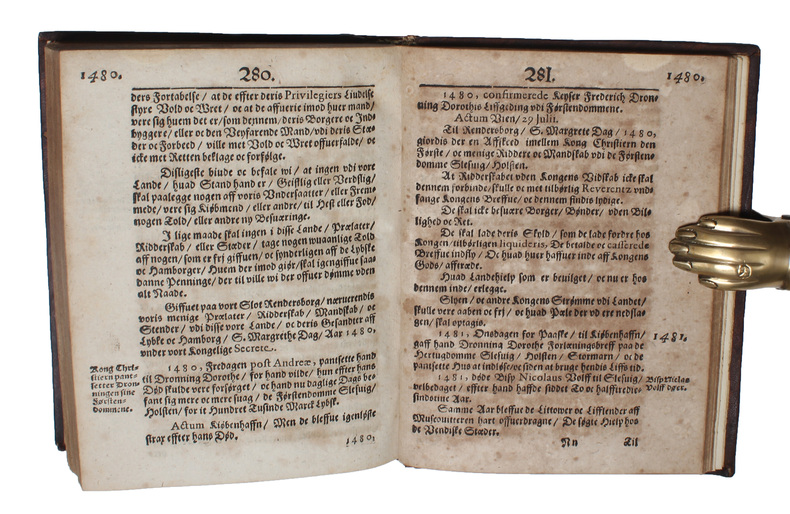 1480.
280.
ders Fortabelse / at de effter deris Privilegiers Liudelse
styre Vold oc Wret / oc at de affuerie imod huer mand /
vere sig huem det er / som dennem / deris Borgere oc Ind-
byggere / eller oc den Veyfarende Mand / vdi deris Stæ-
der oc Forbeed / ville met Vold oc Wret offuerfalde / oc
icke met Retten beklage oc forfølge.
Disligeste biude oc befale wi / at ingen vdi vore
Lande / huad Stand hand er / Geistlig eller Verdslig /
skal paalegge nogen aff voris Vndersaatter / eller Frem-
mede / vere sig Kiøbmend / eller andre / til Hest eller Fod /
nogen Told / eller andre ny Besuæringe.
J lige maade skal ingen i disse Lande / Prælater /
Ridderskab / eller Stæder / tage nogen wuaanlige Told
aff nogen / som er fri giffuen / oc synderligen aff de Lybske
oc Hamborger / Huem der imod giør / skal igengiffue saa-
danne Penninge / der til ville wi der offuer dømme vden
alt Naade.
Giffuet paa vort Slot Rendersborg / næruerendis
voris menige Prælater / Ridderskab / Mandskab / oc
Stender / vdi disse vore Lande / oc deris Gesandter aff
Lybke oc Hamborg / S. Margrethe Dag / Aar 1480,
vnder vort Kongelige Secrete.
Kong Chri-
stiern pant-
setter Dron-
ningen sine
Førsten-
dommene.
1480, Fredagen post Andreæ, pantsette hand
til Dronning Dorothe / for hand vilde / hun effter hans
Død skulde vere forsørget / oc hand nu daglige Dags be-
fant sig mere oc mere suag / de Førstendomme Slesuig /
Holsten / for it Hundret Tusinde Marck Lybsk.
Actum Kiøbenhaffn / Men de bleffue igenløste
strax effter hans Død.
1480,
281.
1480.
1480, confirmerede Keyser Frederich Dron-
ning Dorothis Liffgeding vdi Førstendommene.
Actum Vien / 29 Julii.
Til Rendersborg / S. Margrete Dag / 1480,
giordis der en Affskeed imellem Kong Christiern den
Første / oc menige Riddere oc Mandskab vdi de Førsten-
domme Slesuig / Holsten.
At Ridderskabet vden Kongens Vidskab icke skal
dennem forbinde / skulle oc met tilbørlig Reverentz vnd-
fange Kongens Breffue / oc dennem findis lydige.
De skal ickе besuære Borger / Bønder / vden Bil-
lighed oc Ret.
De skal lade deris Skold / som de lade fordre hos
Kongen / tilbørligen liquideris. De betalde oc casserede
Breffue indsty / Oc huad huer haffuer inde aff Kongens
Gods / afftræde.
Huad Landehielp som er beuilget / oc nu er hos
dennem inde / erlegge.
Slyen / oc andre Kongens Strømme vdi Landet /
skulle vere aaben oc fri / oc huad Pæle der vd ere nedsla-
gen / skal optagis.
1481.
1481, Onsdagen for Paaske / til Kiøbenhaffn /
gaff hand Dronning Dorothe Forlæningsbreff paa de
Hertugdomme Slesuig / Holsten / Stormarn / oc de
pantsette Hus at indløse / oc siden at bruge hendis Liffs tid.
1481, døde Bisp Nicolaus Volff til Slesuig /
velbedaget / effter hand haffde siddet To oc halfftredie-
sindstiue Aar.
Bisp Niclas
Volff døer.
Samme Aar bleffue de Littower oc Lifflender aff
Muscouitteren hart offuerdragne / De søgte Hielp hos
de Vendiske Stæder.
Nn
Til